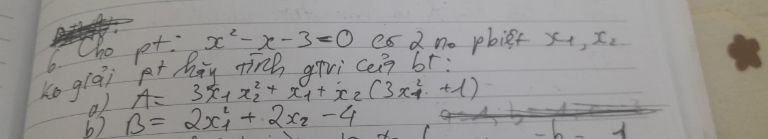 6. Cho pt: x² - x - 3 = 0 có 2 no pbiệt x₁, x₂
ko giải pt hãy tính gtrị của bt:
a) A = 3x₁x₂² + x₁ + x₂(3x₁² + 1)
b) B = 2x₁² + 2x₂ - 4